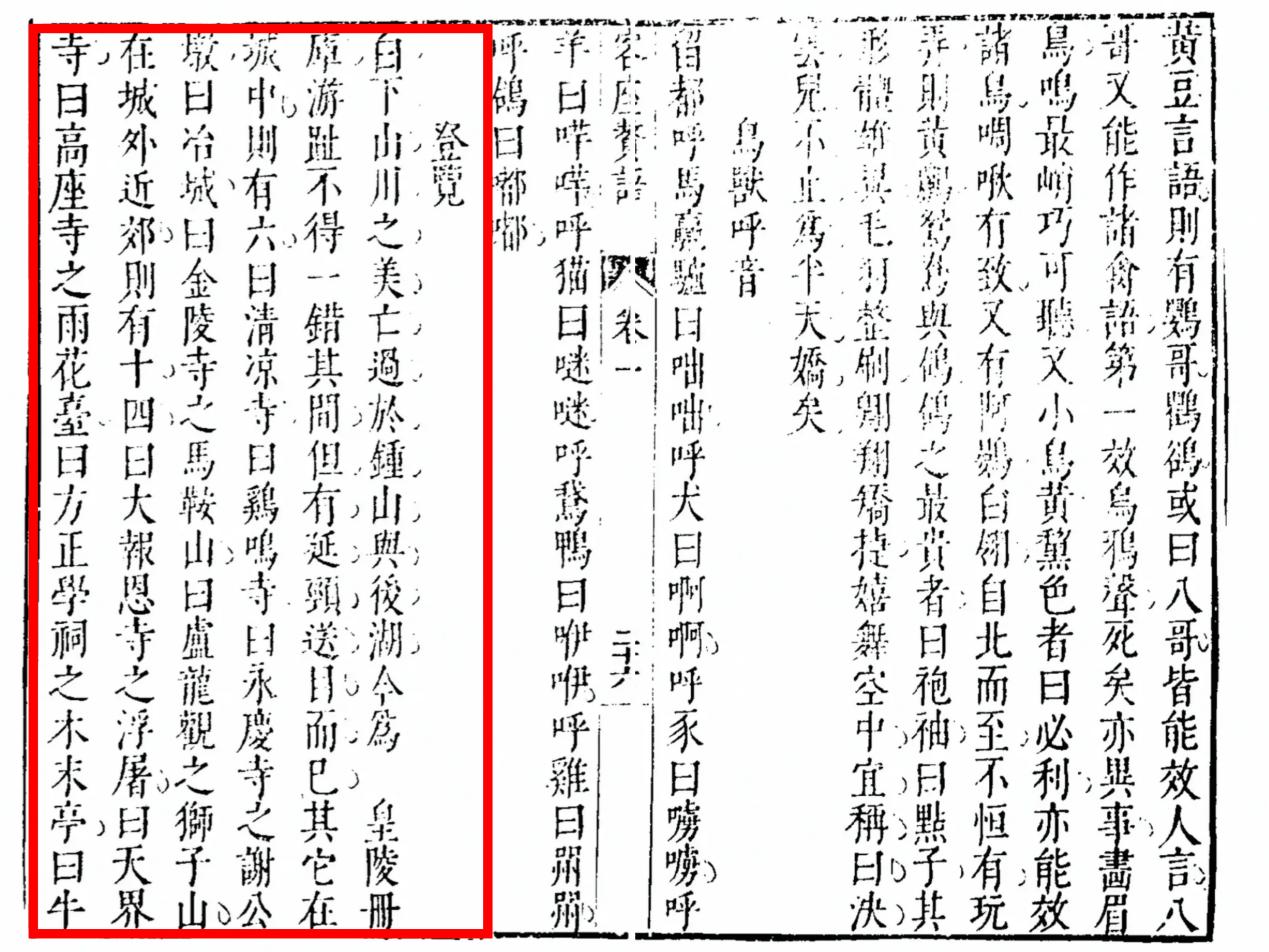 黃豆言語則有鸚哥鸜鵒或曰八哥皆能效人言八
哥又能作諸禽語第一效烏鴉聲死矣亦異事畫眉
鳥鳴最嶠巧可聽又小鳥黃黧色者曰必利亦能效
諸鳥啁啾有致又有阿鷃白翎自北而至不恒有玩
弄則黃鸝鴛鴦與鴿鴿之最貴者曰袍袖曰點子其
形體雄異毛羽整刷翺翔矯捷嬉舞空中宜稱曰泱
雲兒不止爲半天嬌矣
鳥獸呼音
留都呼馬驘驢曰咄咄呼犬曰啊啊呼豕曰嘮嘮呼
客座贅語
卷一
二十六
羊曰哶哶呼猫曰㗭㗭呼鵞鴨曰咿咿呼雞曰喌喌
呼鴿曰嘟嘟
登覽
白下山川之美亡過於鍾山與後湖今爲 皇陵冊
庫游趾不得一錯其間但有延頸送目而已其它在
城中則有六曰清凉寺曰鷄鳴寺曰永慶寺之謝公
墩曰冶城曰金陵寺之馬鞍山曰盧龍觀之獅子山
在城外近郊則有十四曰大報恩寺之浮屠曰天界
寺曰高座寺之雨花臺曰方正學祠之木末亭曰牛